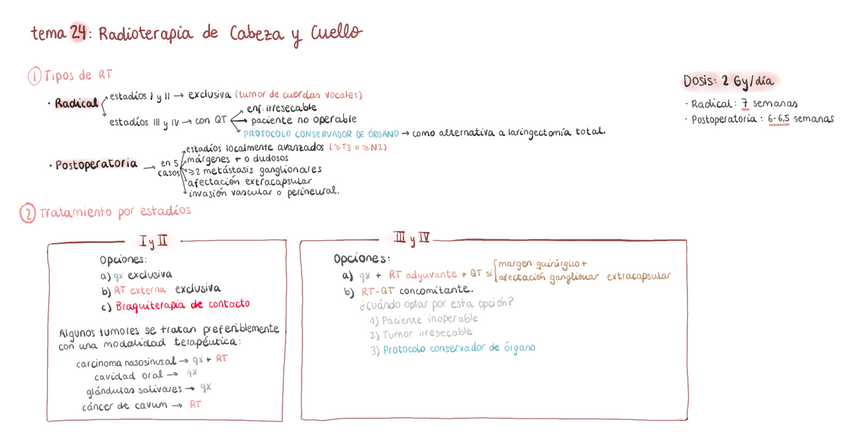 tema 24: Radioterapia de Cabeza y Cuello
① Tipos de RT
· Radical
estadíos I y II → exclusiva (tumor de cuerdas vocales)
estadíos III y IV → con QT
enf. irresecable
paciente no operable
PROTOCOLO CONSERVADOR DE ÓRGANO → como alternativa a laringectomía total.
· Postoperatoria → en 5 casos
estadíos localmente avanzados (≥T3 o ≥N2)
márgenes + o dudosos
≥2 metástasis ganglionares
afectación extracapsular
invasión vascular o perineural.
Dosis: 2 Gy/día
· Radical: 7 semanas
· Postoperatoria: 6-6,5 semanas
② Tratamiento por estadíos
I y II
Opciones:
a) qx exclusiva
b) RT externa exclusiva
c) Braquiterapia de contacto
Algunos tumores se tratan preferiblemente
con una modalidad terapéutica:
carcinoma nasosinusal → qx + RT
cavidad oral → qx
glándulas salivares → qx
cáncer de cavum → RT
III y IV
Opciones:
a) qx + RT adyuvante + QT si
margen quirúrgico +
afectación ganglionar extracapsular
b) RT-QT concomitante.
¿Cuándo optar por esta opción?
1) Paciente inoperable
2) Tumor irresecable
3) Protocolo conservador de órgano